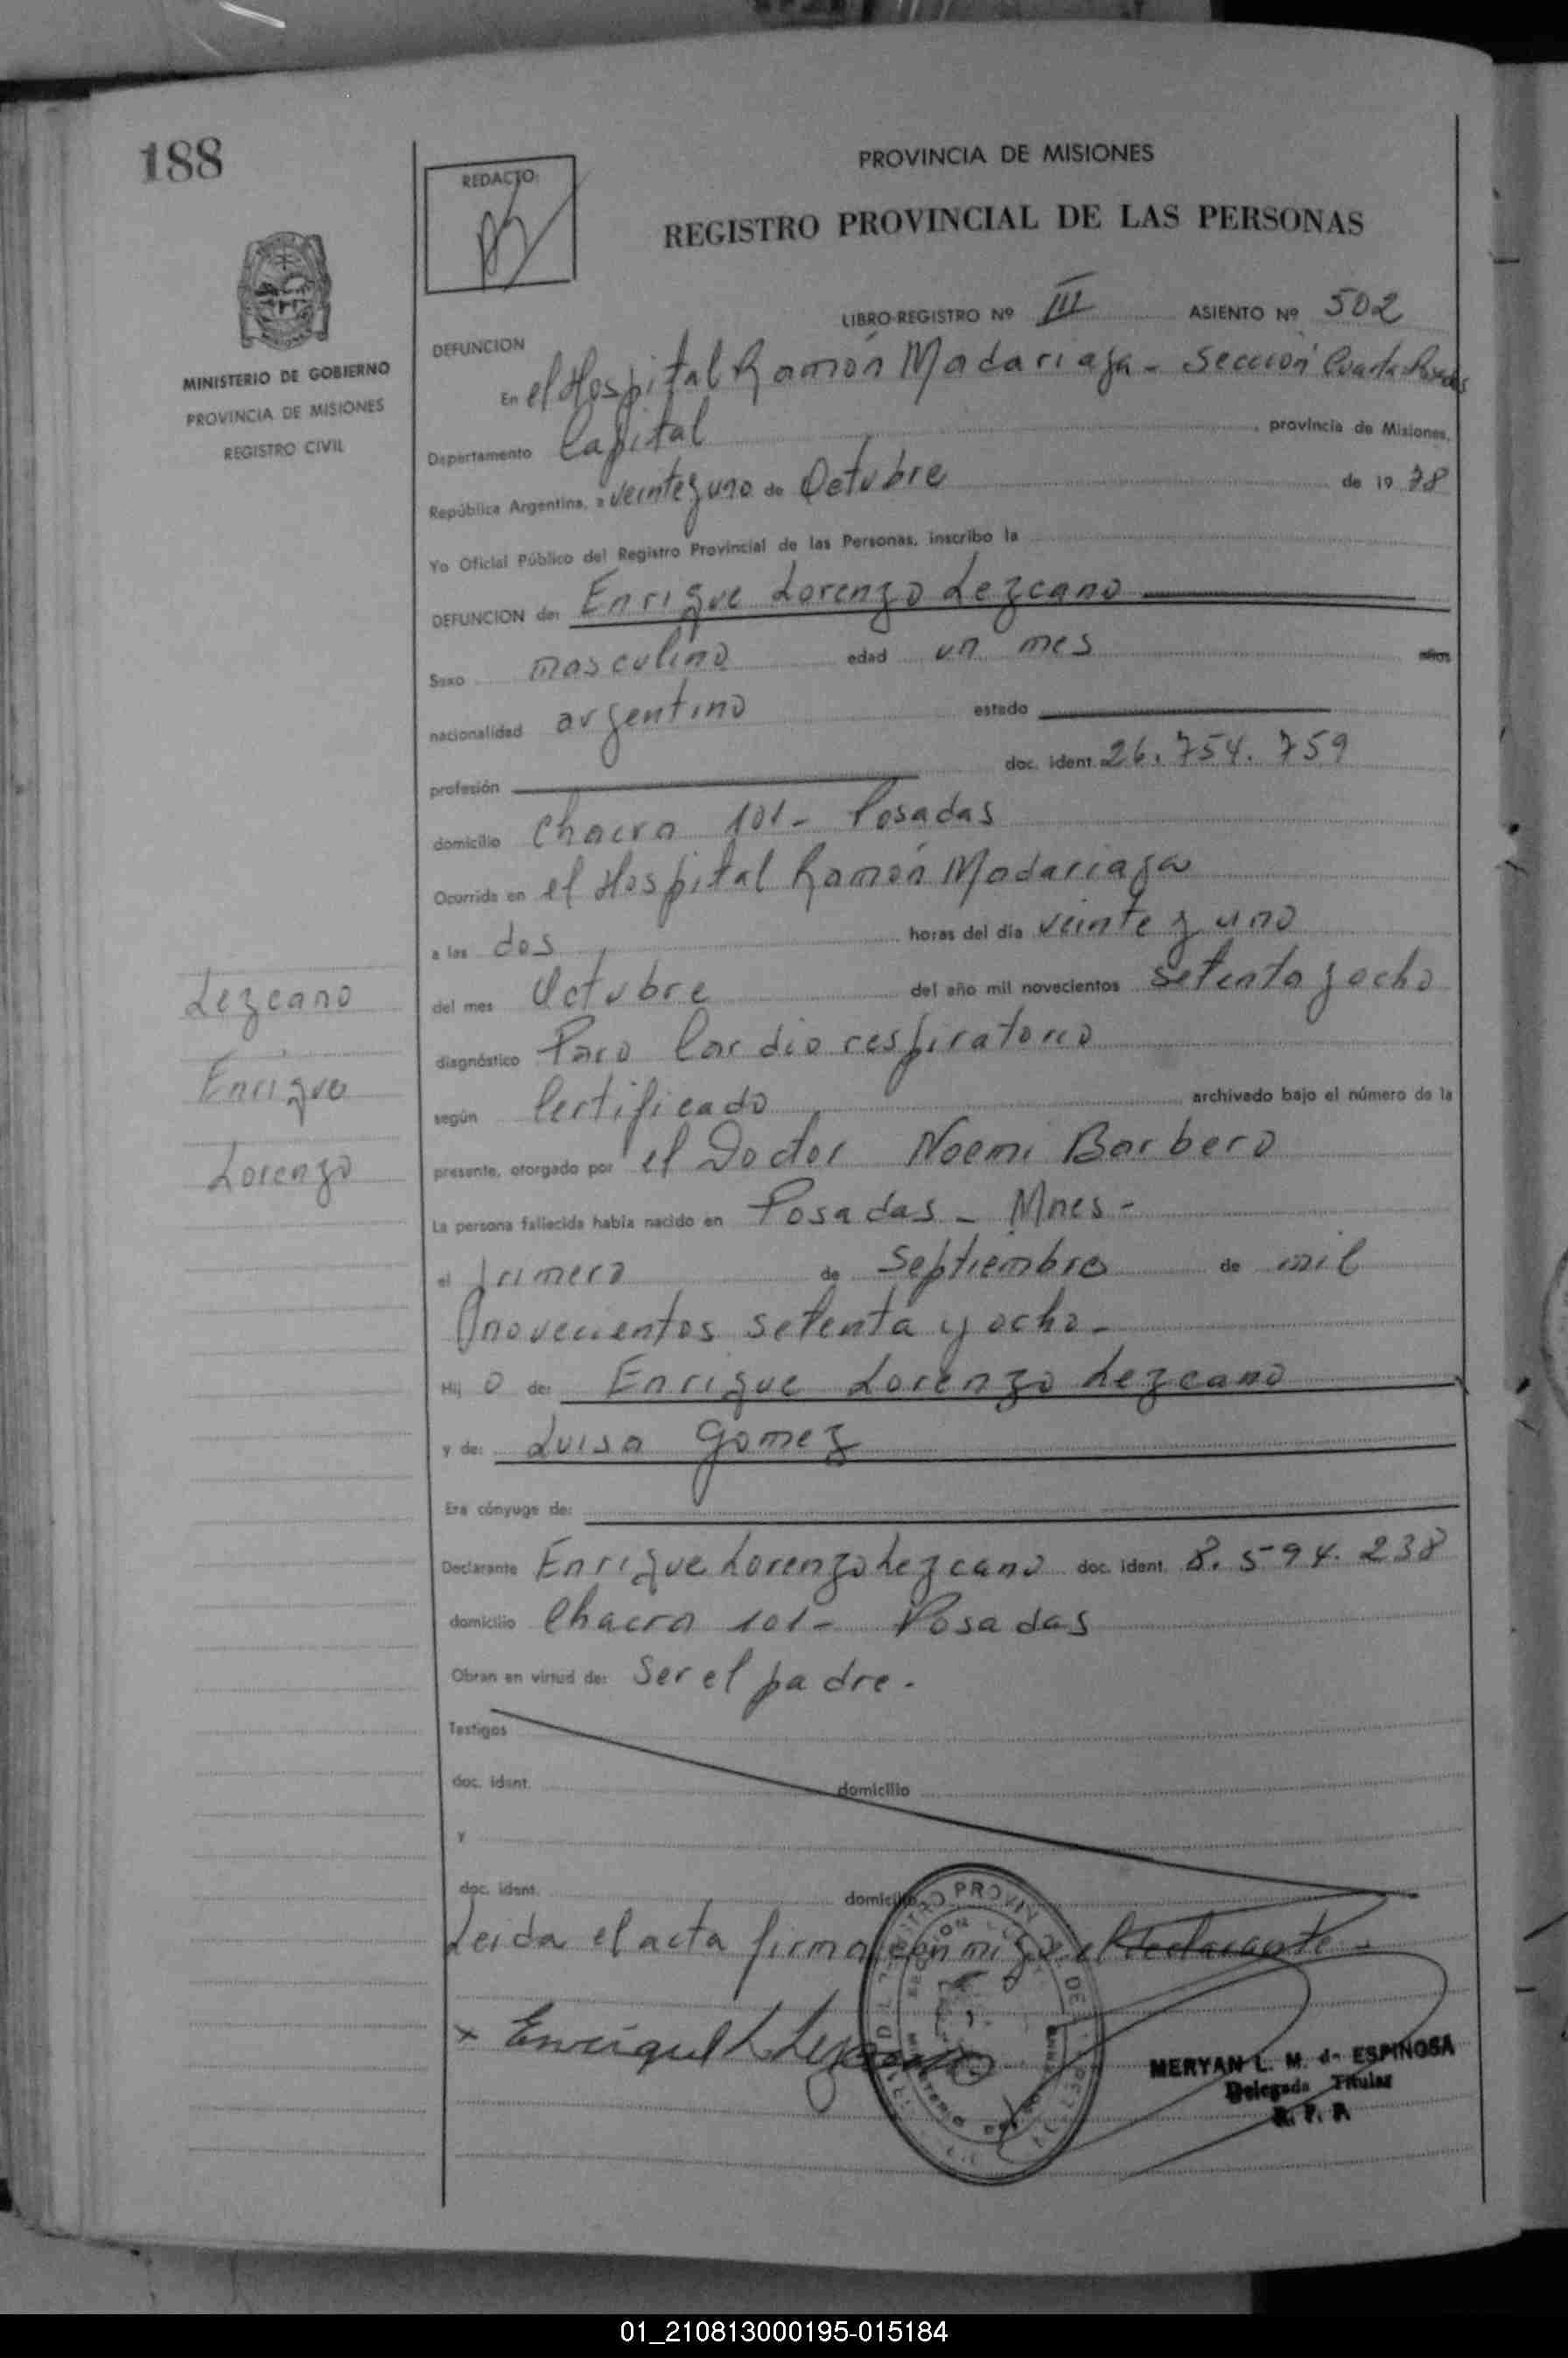 188
REDACTO:
PROVINCIA DE MISIONES
REGISTRO PROVINCIAL DE LAS PERSONAS
MINISTERIO DE GOBIERNO
PROVINCIA DE MISIONES
REGISTRO CIVIL
LIBRO-REGISTRO Nº III ASIENTO Nº 502
DEFUNCION
En el Hospital Ramón Madariaga - Sección Cuarta Posadas
Departamento Capital , provincia de Misiones,
República Argentina, a veinte y uno de Octubre de 19 78
Yo Oficial Público del Registro Provincial de las Personas, inscribo la
DEFUNCION de: Enrique Lorenzo Lezcano
Sexo masculino edad un mes años
nacionalidad argentino estado
profesión doc. ident. 26.754.759
domicilio Chacra 101- Posadas
Ocurrida en el Hospital Ramón Madariaga
a las dos horas del día veinte y uno
del mes Octubre del año mil novecientos setenta y ocho
diagnóstico Paro Cardio respiratorio
según Certificado archivado bajo el número de la
presente, otorgado por el Doctor Noemi Barbero
La persona fallecida había nacido en Posadas - Mnes-
el primero de septiembre de mil
novecientos setenta y ocho-
Hij o de: Enrique Lorenzo Lezcano
y de: Luisa Gomez
Era cónyuge de:
Declarante Enrique Lorenzo Lezcano doc. ident. 8.594.238
domicilio Chacra 101- Posadas
Obran en virtud de: Ser el padre.
Testigos
doc. ident. domicilio
y
doc. ident. domicilio
Leida el acta firma conmigo el declarante-
x Enrique L Lezcano
MERYAN L. M. de ESPINOSA
Delegada Titular
R. P. P.
Lezcano
Enrique
Lorenzo
01_210813000195-015184